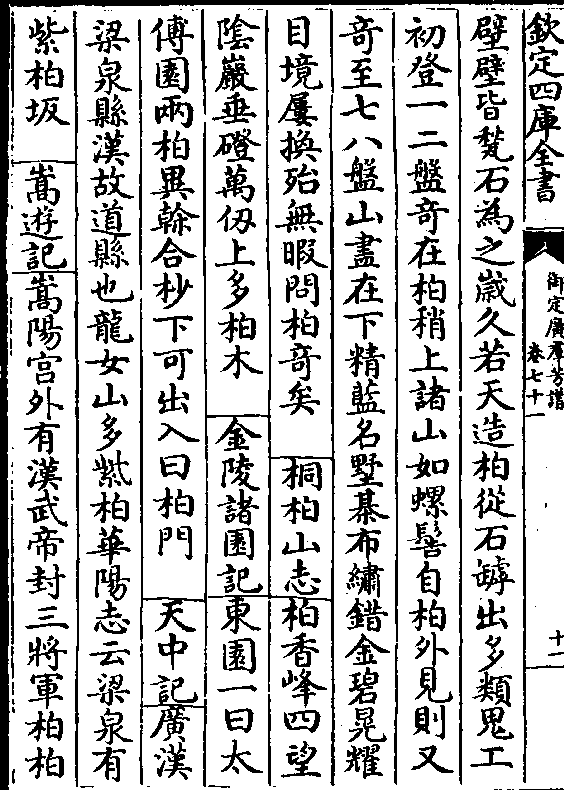 欽定四庫全書
御定廣羣芳譜
卷七十一
十二
壁壁皆甃石為之歲久若天造柏從石罅出多類鬼工
初登一二盤奇在柏稍上諸山如螺髻自柏外見則又
奇至七八盤山盡在下精藍名墅棊布繡錯金碧晃耀
目境屢換殆無暇問柏奇矣 桐柏山志 柏香峰四望
陰巖垂磴萬仭上多柏木 金陵諸園記 東園一曰太
傅園兩柏異榦合杪下可出入曰柏門 天中記 廣漢
梁泉縣漢故道縣也龍女山多紫柏華陽志云梁泉有
紫柏坂 嵩遊記 嵩陽宫外有漢武帝封三將軍柏柏